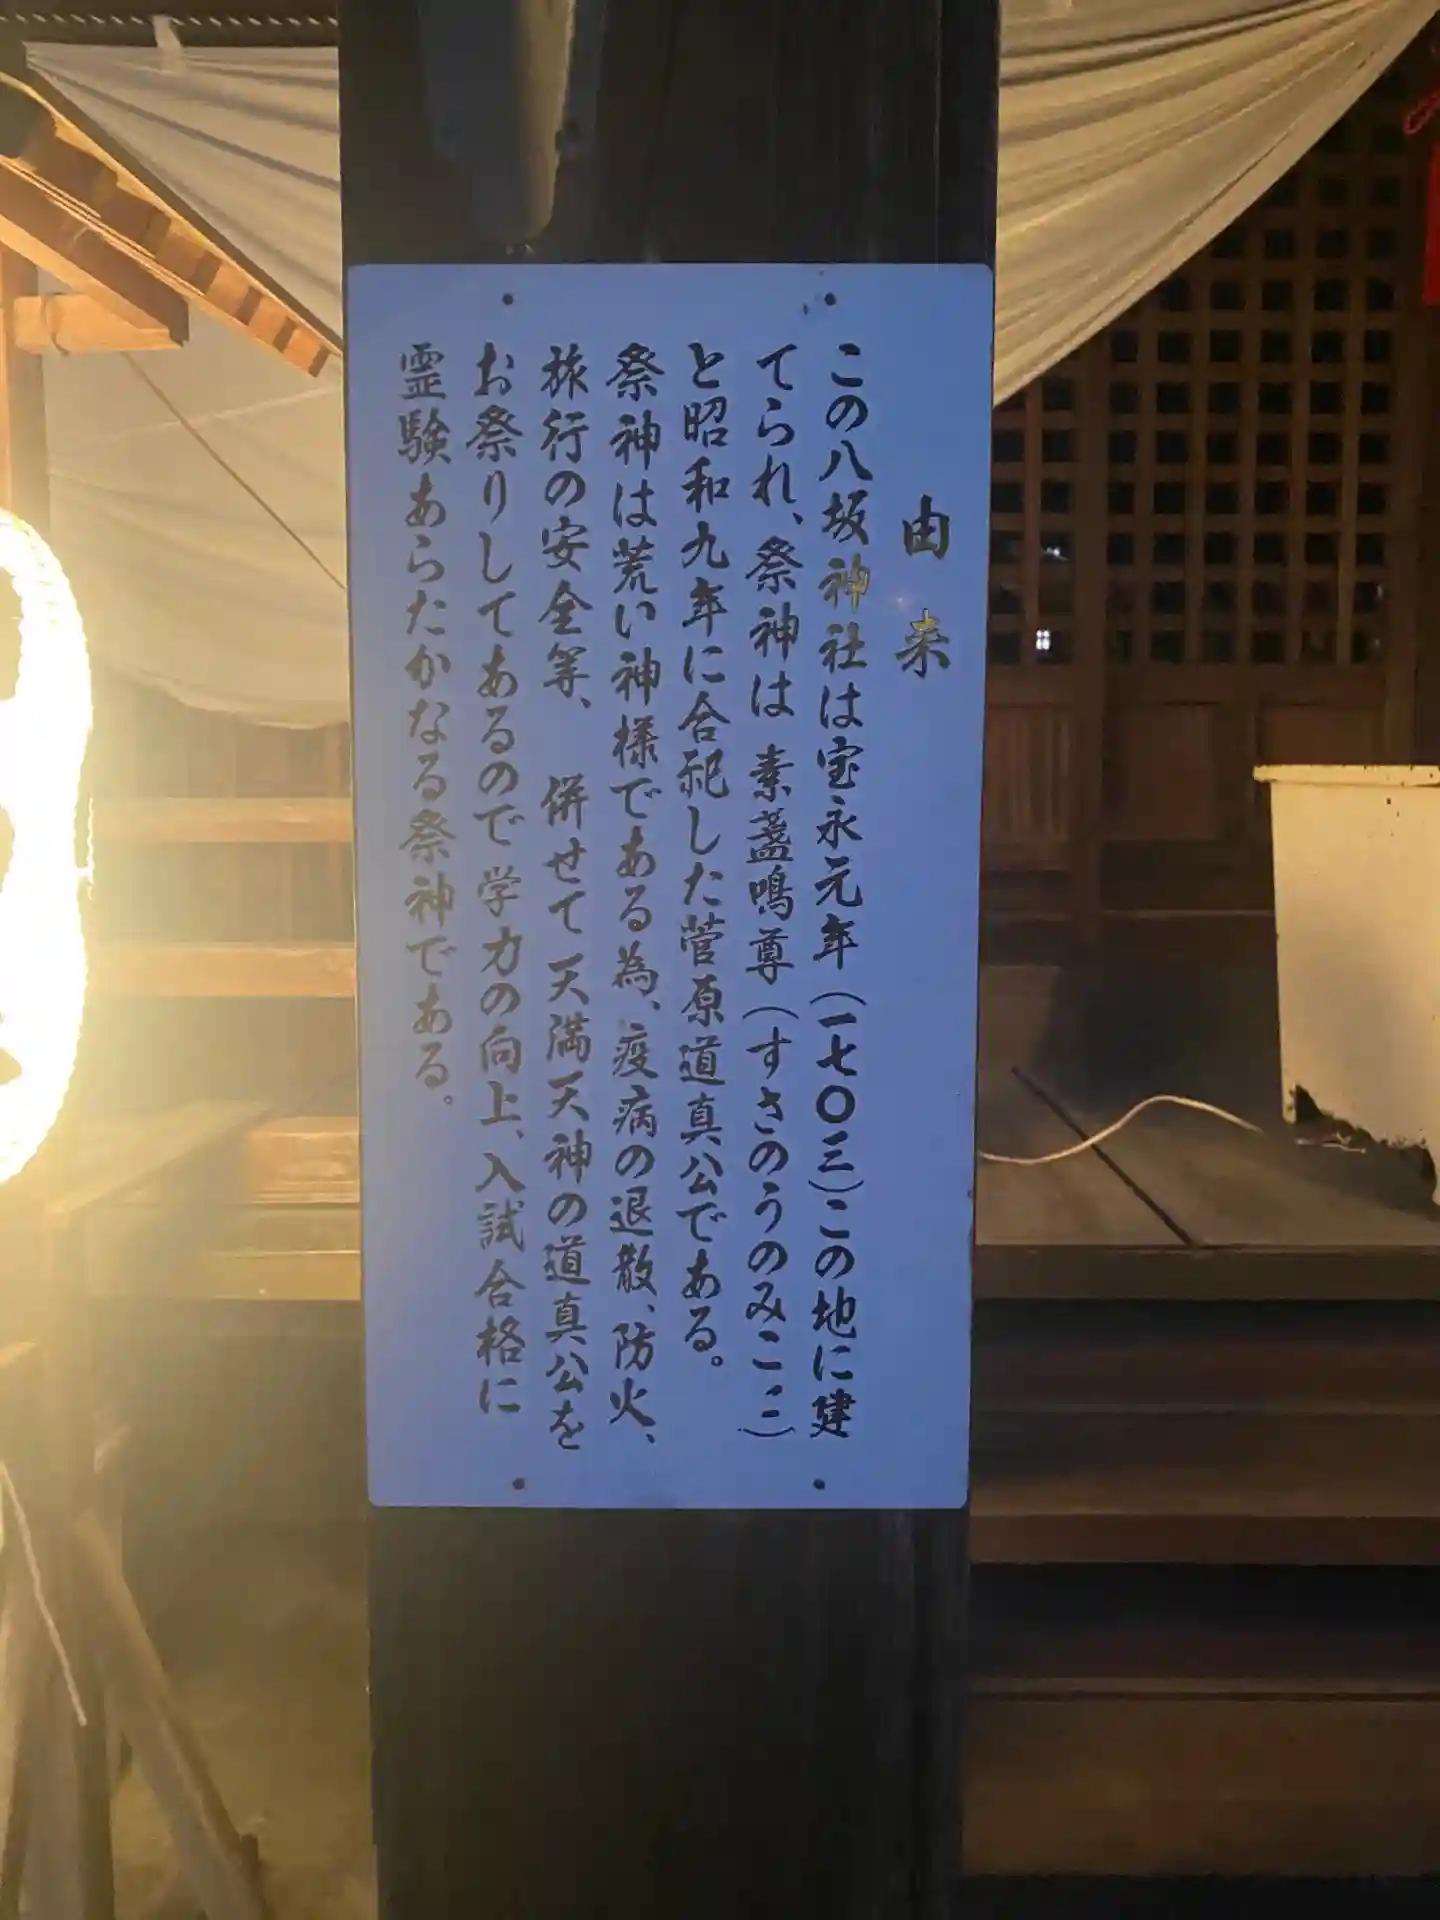 由来
この八坂神社は宝永元年(一七〇三)この地に建
てられ、祭神は 素盞鳴尊(すさのうのみこと)
と昭和九年に合祀した菅原道真公である。
祭神は荒い神様である為、疫病の退散、防火、
旅行の安全等、 併せて天満天神の道真公を
お祭りしてあるので学力の向上、入試合格に
霊験あらたかなる祭神である。